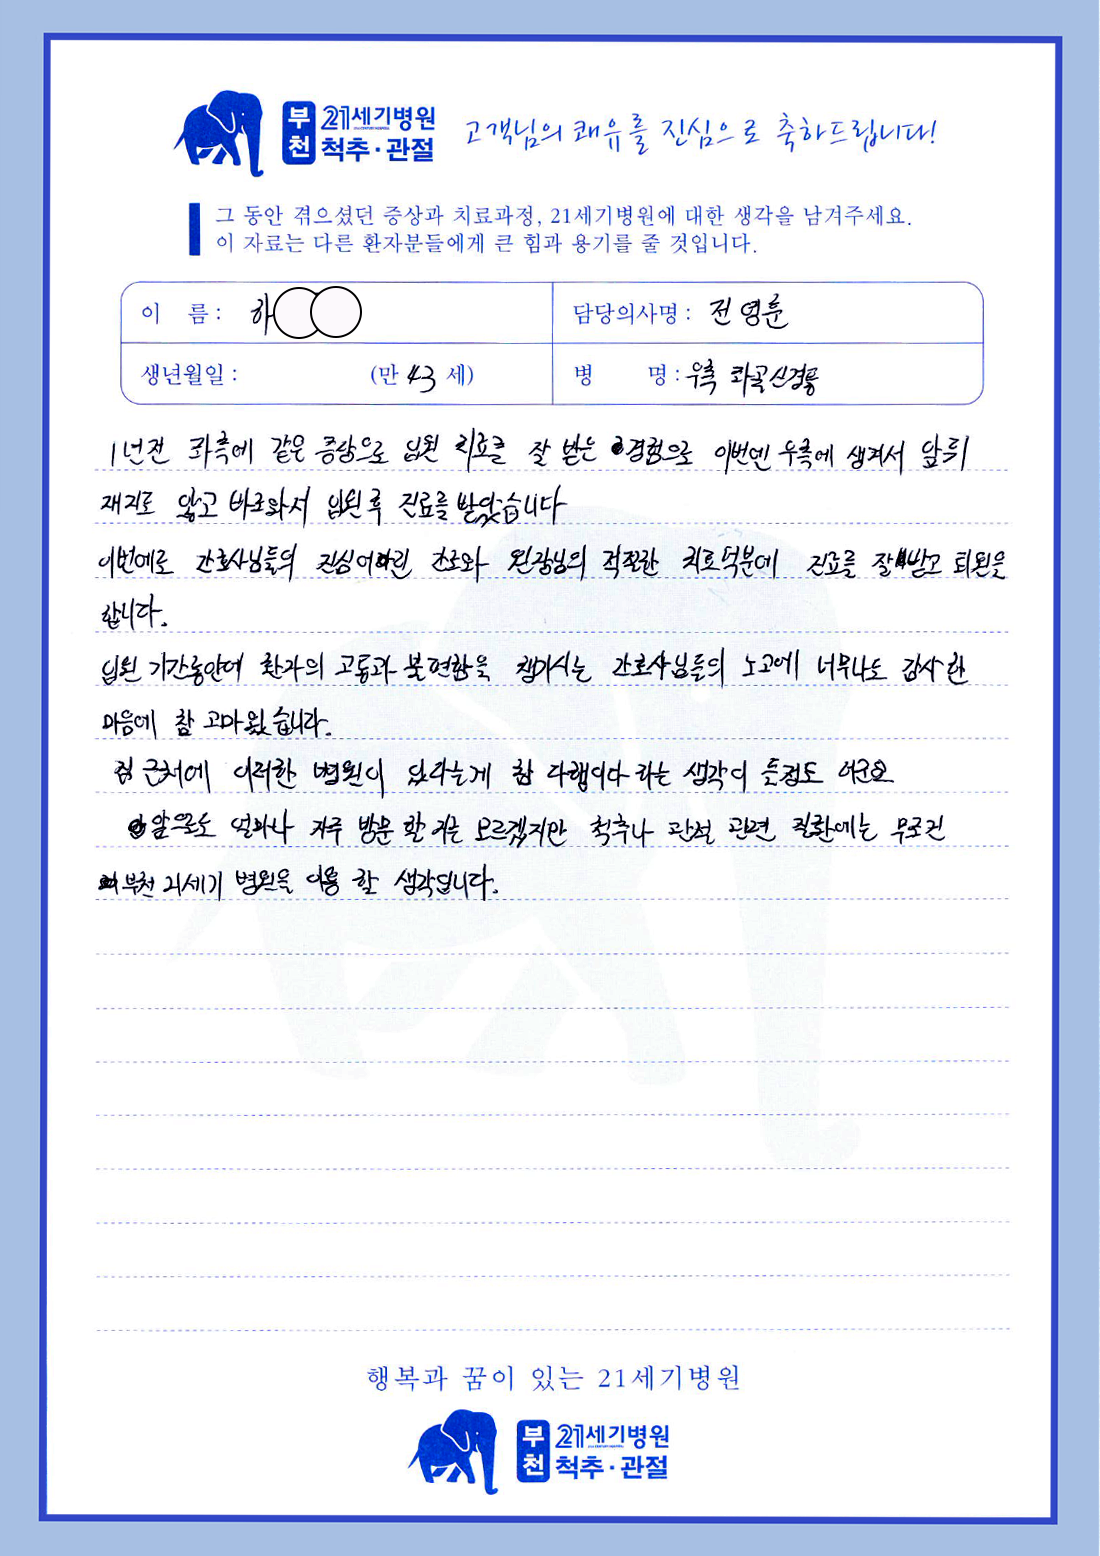 부천 21세기병원 척추·관절 고객님의 쾌유를 진심으로 축하드립니다!
그 동안 겪으셨던 증상과 치료과정, 21세기병원에 대한 생각을 남겨주세요.
이 자료는 다른 환자분들에게 큰 힘과 용기를 줄 것입니다.
이 름 : 하
담당의사명 : 전영훈
생년월일 : (만 43 세)
병 명 : 우측 좌골신경통
1년전 좌측에 같은 증상으로 입원 치료를 잘 받은 경험으로 이번엔 우측에 생겨서 앞뒤
재지도 않고 바로와서 입원후 진료를 받았습니다
이번에도 간호사님들의 진심어린 간호와 원장님의 적절한 치료덕분에 진료를 잘 받고 퇴원을
합니다.
입원 기간동안에 환자의 고통과 불편함을 챙기시는 간호사님들의 노고에 너무나도 감사한
마음에 참 고마웠습니다.
집 근처에 이러한 병원이 있다는게 참 다행이다 라는 생각이 든점도 있군요
앞으로도 얼마나 자주 방문 할 지는 모르겠지만 척추나 관절 관련 질환에는 무조건
부천 21세기 병원을 이용 할 생각입니다.
행복과 꿈이 있는 21세기병원
부천 21세기병원 척추·관절